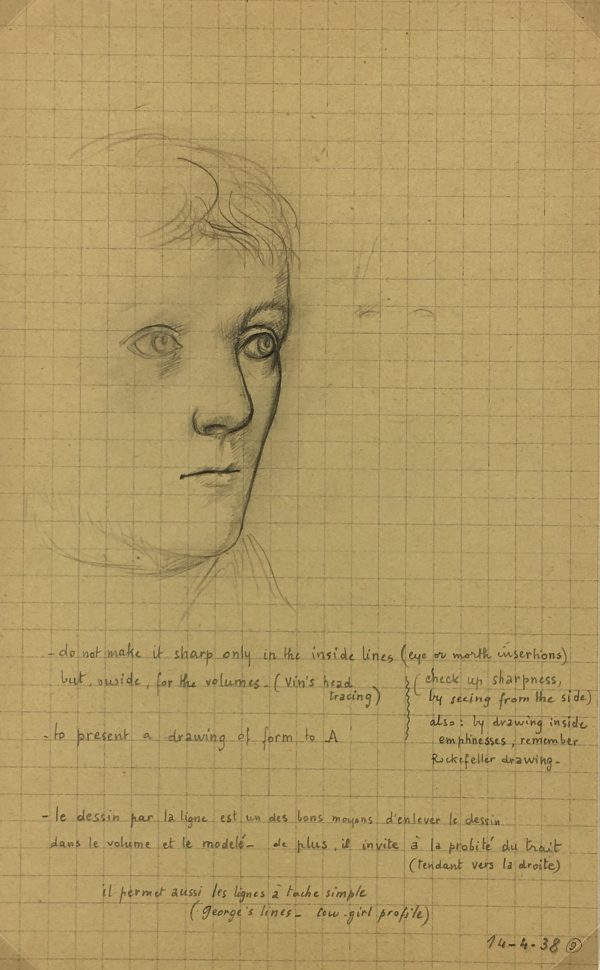 - do not make it sharp only in the inside lines (eye or morth insertions)
but, ouside, for the volumes - (Vin's head
tracing)
(check up sharpness,
by seeing from the side)
also: by drawing inside
emptinesses, remember
Rockefeller drawing -
- to present a drawing of form to A
- le dessin par la ligne est un des bons moyens d'enlever le dessin
dans le volume et le modelé - de plus, il invite à la probité du trait
(tendant vers la droite)
il permet aussi les lignes à tache simple
(George's lines - cow-girl profile)
14-4-38 9